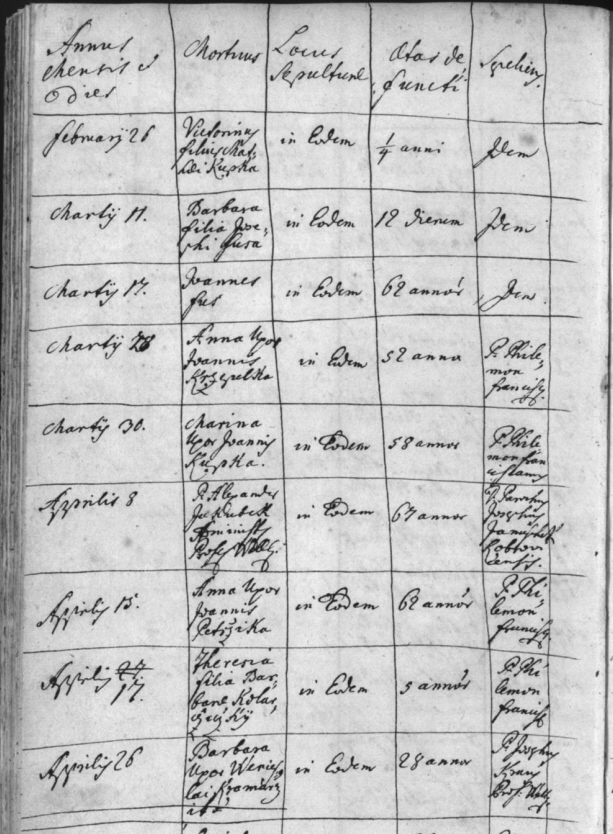 Annus
Mensis &
Dies
Mortuus
Locus
Sepulturae
Ætas de
functi
Sepeliens
Februarij 26
Victorinus
filius Mat-
Kupka
in Eodem
1/4 anni
Idem
Martij 11.
Barbara
filia Jose-
phi
in Eodem
12 dierum
Idem
Martij 17.
Joannes
in Eodem
62 annor
Idem
Martij 28
Anna Uxor
Joannis
Krzepelka
in Eodem
52 annor
P. Phile-
mon
francisc.
Martij 30.
Marina
Uxor Joannis
Kupka.
in Eodem
58 annor
P. Phile
mon fran
ciscanus
Aprilis 8
P. Alexander
in Eodem
67 annor
P.
Josephus
Aprilis 15.
Anna Uxor
Joannis
Petržika
in Eodem
62 annor
P. Phi-
lemon
francisc
Aprilis
17.
Theresia
filia Bar-
barae Kolar
in Eodem
5 annor
P. Phi
lemon
francisc
Aprilis 26
Barbara
Uxor Wences-
lai
in Eodem
28 annor
P. Josephus
Kraus